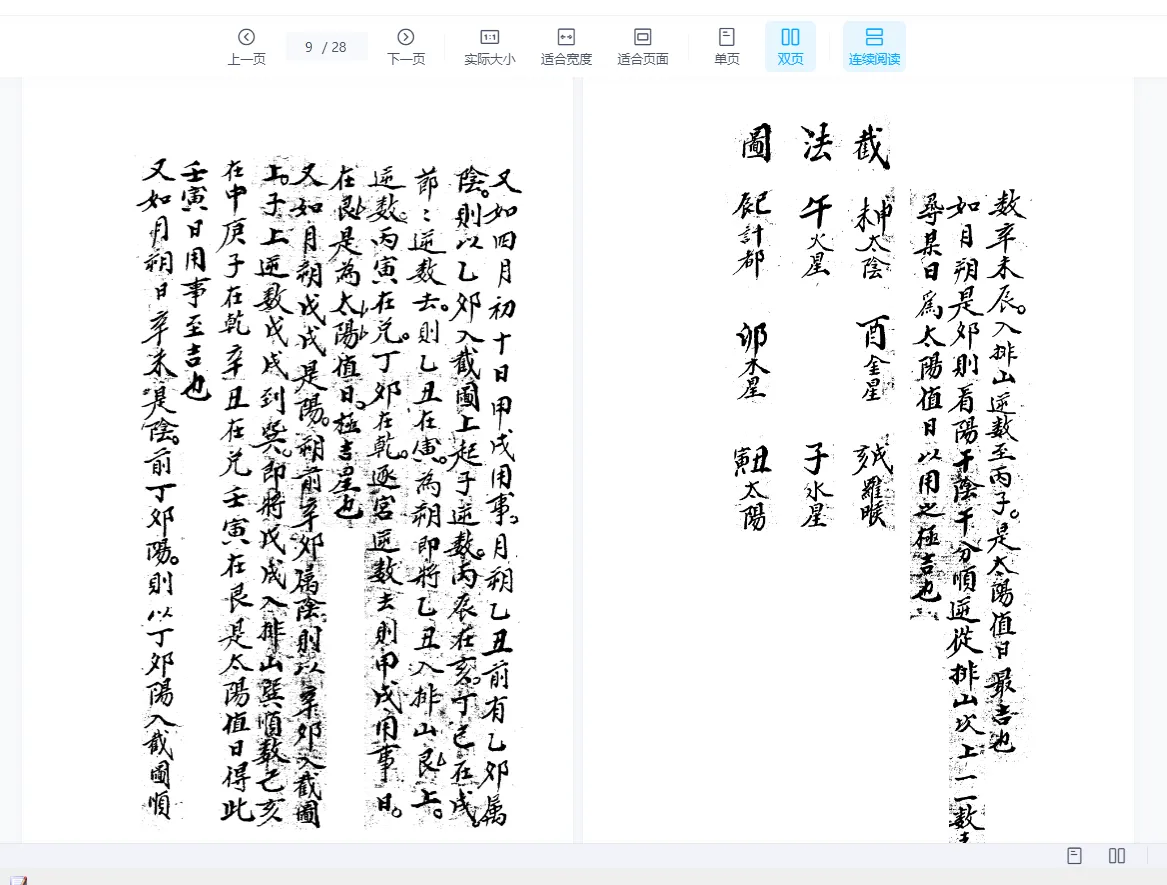 上一页
9 / 28
下一页
1:1
实际大小
适合宽度
适合页面
单页
双页
连续阅读
又如四月初十日甲戌用事。月朔乙丑前有乙卯属
陰。則以乙卯入截圖上起子逆数。丙辰在亥。丁巳在戌。
節：逆数去。則乙丑在寅。為朔即將乙丑入排山艮上。
逆数丙寅在兌。丁卯在乾。逐宮逆数去則甲戌用事日。
在艮是為太陽值日。極吉星也
又如月朔戊戌是陽。朔前辛卯属陰。則以辛卯入截圖
上。子上逆数戊戌到巽。即將戊戌入排山巽順数己亥
在中庚子在乾辛丑在兌壬寅在艮是太陽值日得此
壬寅日用事至吉也
又如月朔日辛未是陰。前丁卯陽。則以丁卯陽入截圖順
数辛未辰。入排山逆数至丙子。是太陽值日最吉也
如月朔是卯則看陽干陰干分順逆從排山次上一一数
尋某日為太陽值日以用之極吉也
截法圖
申未太陰
酉金星
戌亥羅睺
午火星
子水星
巳辰計都
卯木星
丑寅太陽